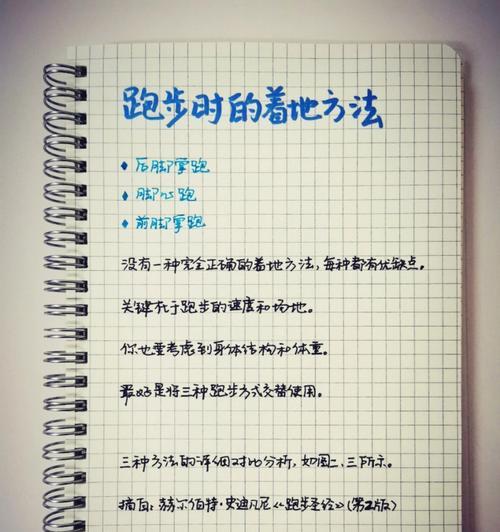 跑步时的着地方法
♦ 后脚掌跑
♦ 脚心跑
♦ 前脚掌跑
没有一种完全正确的着地方法，每种都有优缺点。
关键在于跑步的速度和场地。
你也要考虑到身体结构和体重。
最好是将三种跑步方式交替使用。
三种方法的详细对比分析，如图二、三所示。
摘自：赫尔伯特·史迪凡尼《跑步圣经》（第2版）